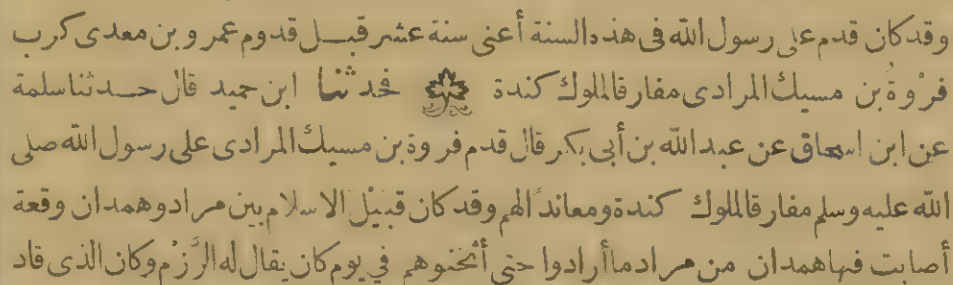 وقد كان قدم على رسول الله في هذه السنة أعنى سنة عشر قبل قدوم عمرو بن معدى كرب
فرْوةُ بن مسيك المرادى مفارقا لملوك كندة فحدثنا ابن حميد قال حدثنا سلمة
عن ابن اسحاق عن عبد الله بن أبى بكر قال قدم فروة بن مسيك المرادى على رسول الله صلى
الله عليه وسلم مفارقا لملوك كندة ومعاندًا لهم وقد كان قبيْل الاسلام بين مراد وهمدان وقعة
أصابت فيها همدان من مراد ما أرادوا حتى أثخنوهم في يوم كان يقال له الرَّزْم وكان الذى قاد